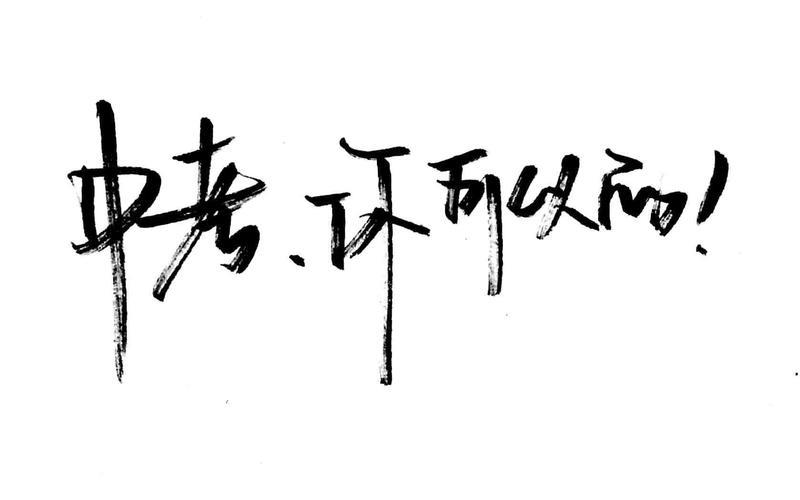 中考、你可以的！